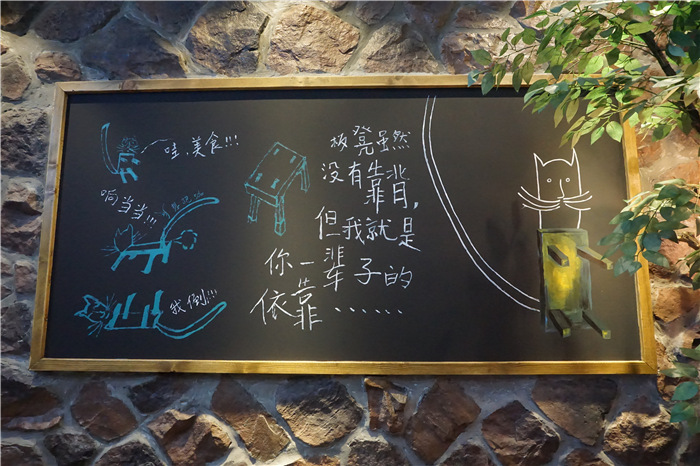 哇，美食!!!
响当当!!!
我倒!!!
板凳虽然
没有靠背，
但我就是
你一辈子的
依靠······